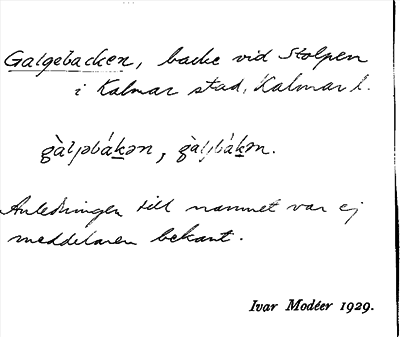 Galgebacken, backe vid Stolpen
i Kalmar stad, Kalmar l.
gàljəbákən, gàljbákən.
Anledningen till namnet var ej
meddelaren bekant.
Ivar Modéer 1929.